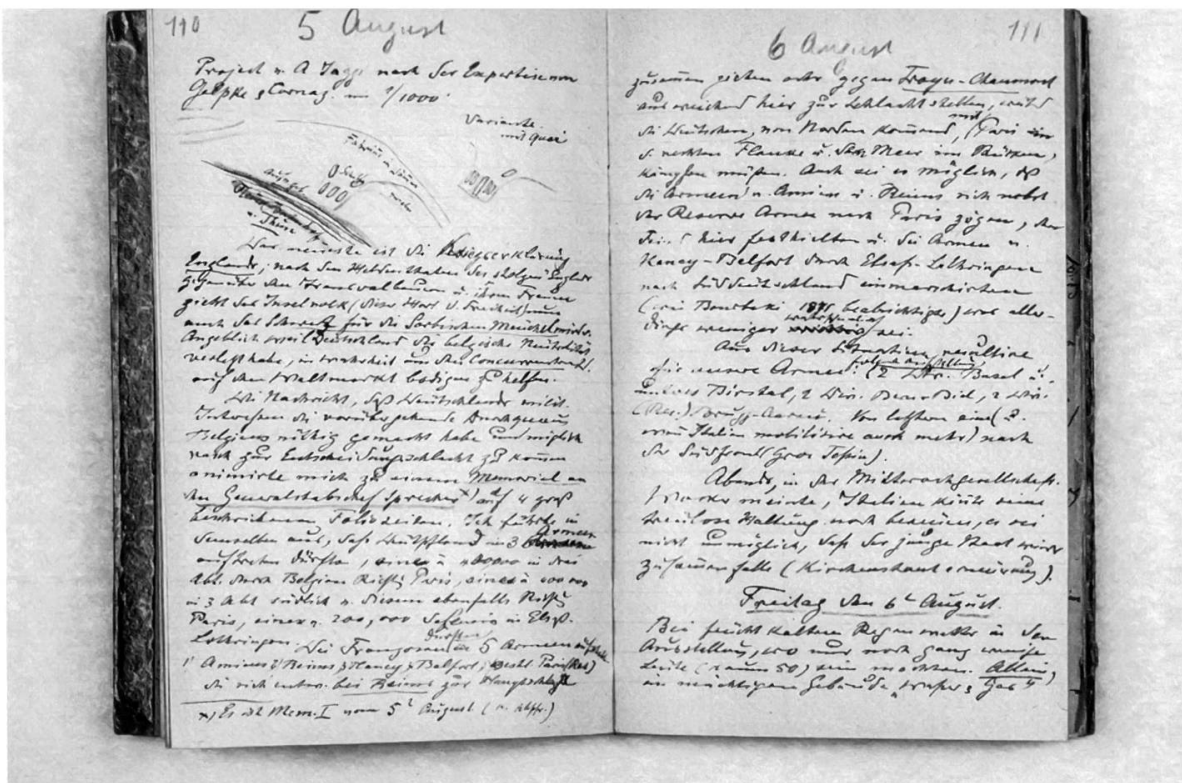 110
5 August
Project v. A Jaggi nach der Expertise von
Gelpke & Cornaz. im 1/1000
Variante
mit Quai
Das neueste ist die Kriegserklärung
Englands, nach den Heldenthaten der stolzen Engländer
gegenüber den Transvaalburen u. ihren Frauen
zieht das Inselvolk (dieser Hort d. Freiheit) nun
auch das Schwert für die Serbischen Meuchelmörder.
Angeblich weil Deutschland die belgische Neutralität
verletzt habe, in Wahrheit um den Concurrenten
auf dem Weltmarkt bodigen zu helfen.
Die Nachricht, daß Deutschland milit.
die vorübergehende
Belgiens nöthig gemacht habe und möglichst
rasch zur Entscheidungsschlacht zu kommen
animirte mich zu einem Memorial an
den Generalstabschef Sprecher x) auf 4 groß
beschriebenen Folioseiten. Ich führte in
demselben aus, daß Deutschland in 3 Armeen
auftreten dürfte, eine à 400000 in drei
Abt. durch Belgien Richtg Paris, eine à
in 3 Abt südlich v. diesem ebenfalls Richtg
Paris, eine v. 200,000 defensiv in Elsß.
Lothringen. Die Franzosen dürften 5 Armeen
1 Amiens 2 Reims 3 Nancy 4 Belfort 5
die sich entw. bei Reims zur Hauptschlacht
x) Es ist Mem. I vom 5t August
111
6 August
zusammen ziehen oder gegen Troyes-Chaumont
ausweichend hier zur Schlacht stellen, weil
die Deutschen, von Norden kommend, mit Paris in
d. rechten Flanke u. das Meer im Rücken,
kämpfen müßten. Auch sei es möglich, daß
die Armeen v. Amiens u. Reims sich nebst
der Reserve Armee nach Paris zögen, den
hier festhielten u. die Armeen v.
Nancy-Belfort durch Elsaß-Lothringen
nach Süddeutschland einmarschirten
(wie Bourbaki 1871 beabsichtigte) was aller-
dings weniger wahrscheinlich sei.
Aus dieser Situation resultire
für unsere Armee: folgende Aufstellung (2 Div. Basel u.
unteres Birstal, 2 Div. Bern-Biel, 2 Div.
(Res.) Brugg-Aarau. Von letztern eine (z.
wenn Italien mobilisire auch mehr) nach
der Südfront (Gros Tessin).
Abends, in der Mittwochgesellschaft.
meinte, Italien könnte seine
treulose Haltung noch bereuen, es sei
nicht unmöglich, daß der junge Staat wieder
zusammenfalle (Kirchenstaat erneuerung).
Freitag den 6t August.
Bei feucht kaltem Regenwetter in der
Ausstellung, wo nur noch ganz wenige
Leute (kaum 50) sein mochten. Allein,
in mächtigem Gebäude, Wasser & Gas